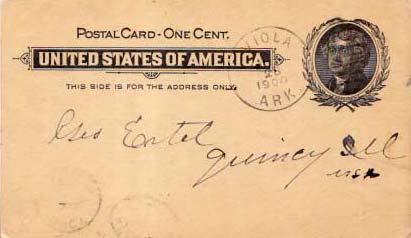 POSTAL CARD - ONE CENT.
UNITED STATES OF AMERICA.
THIS SIDE IS FOR THE ADDRESS ONLY.
VIOLA
1900
ARK.
Geo Ertel
Quincy Ill
USA